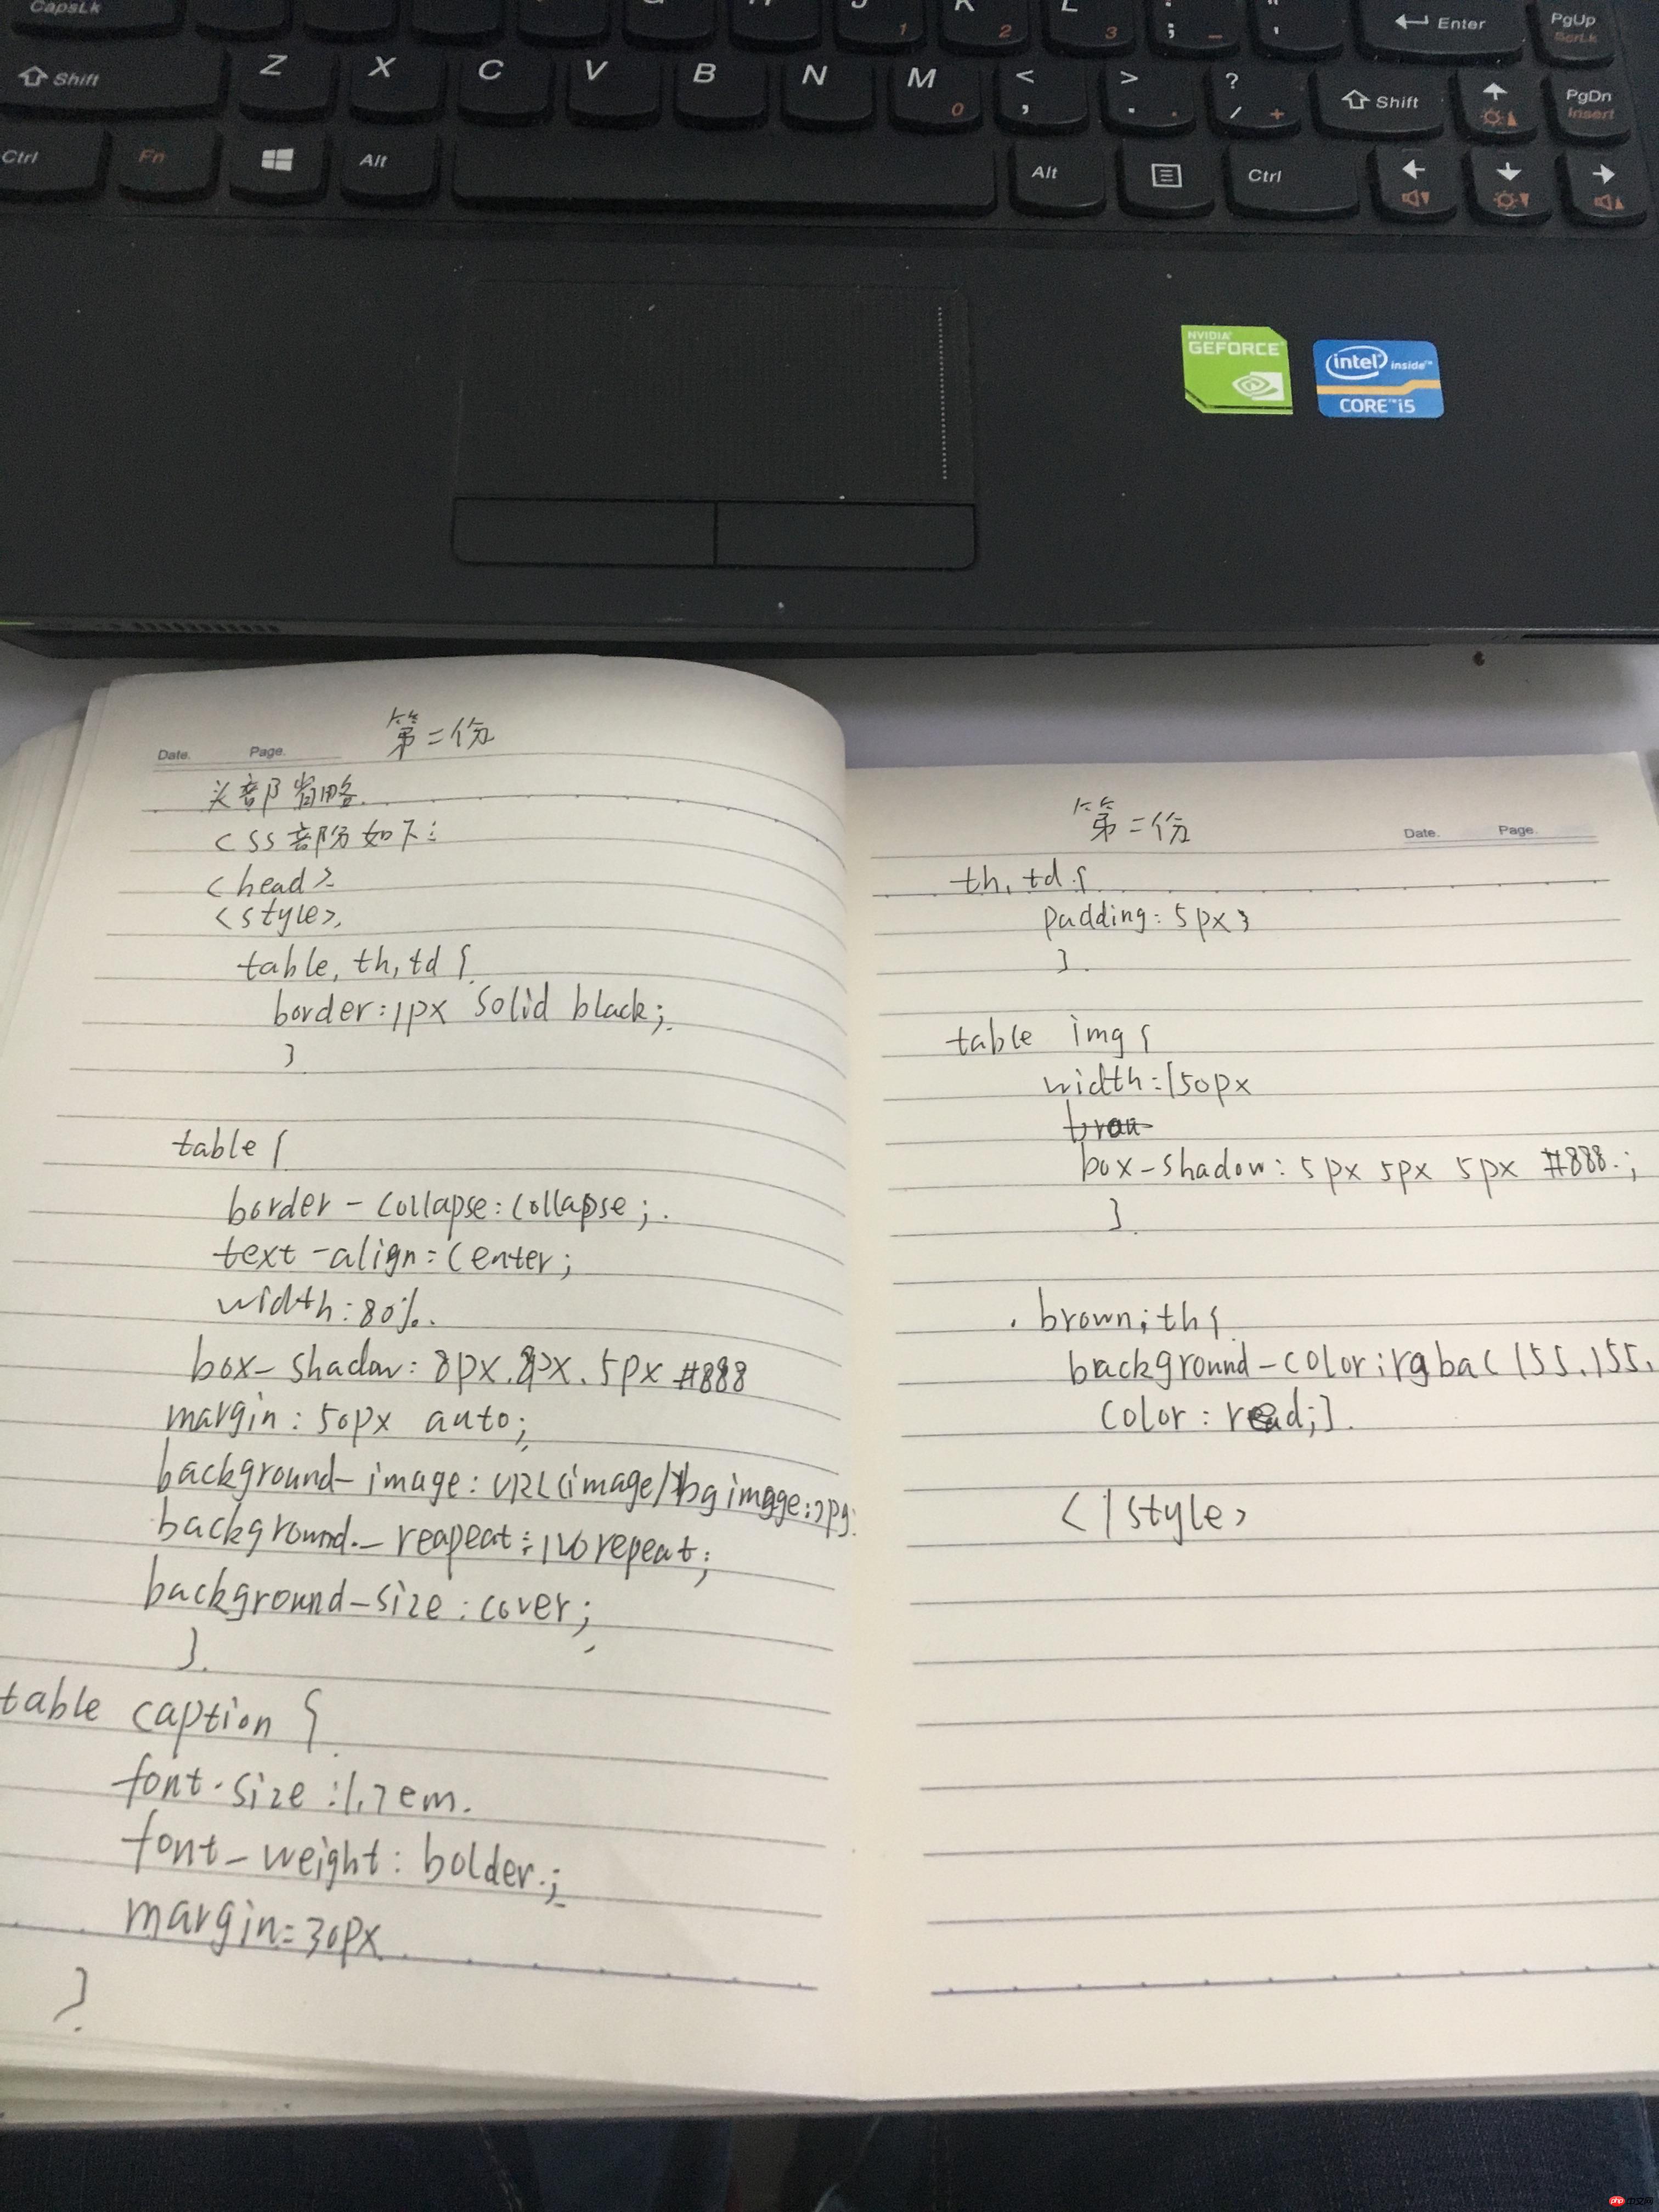 CapsLk
J 1 K 2 L 3 : ; _ " ' Enter PgUp ScrLk
Shift Z X C V B N M 0 < , > . ? / + Shift PgDn Insert
Ctrl Fn Alt Alt Ctrl
NVIDIA
GEFORCE
intel inside™
CORE™ i5
第二份
Date. Page.
头部省略.
CSS部分如下:
<head>
<style>
table, th, td {
border:1px solid black;
}
table {
border-collapse:collapse;
text-align:center;
width:80%.
box-shadow: 8px.8px.5px #888
margin:50px auto;
background-image: URL(image/bgimage.jpg
background-reapeat: norepeat;
background-size:cover;
}
table caption {
font-size:1.7em.
font-weight: bolder;
margin=30px
}
第二份
Date. Page.
th, td {
padding: 5px;
}
table img {
width:150px
box-shadow: 5px 5px 5px #888;
}
.brown;th{
background-color:rgba(155.155.
color: read;}
</style>
php 中文网